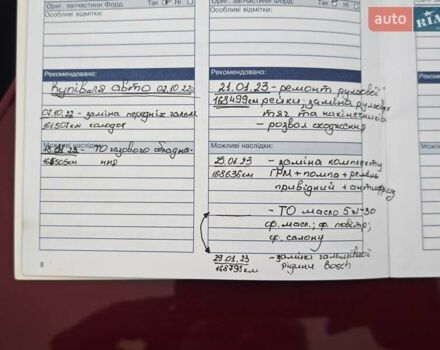 Ориг. запчастини Форд: Так Ні
Особливі відмітки:
Рекомендовано:
Купівля авто 02.10.22
07.10.22 - заміна передніх гальм.
161507км колодок
Можливі наслідки:
18.01.23 - ТО газового обладна-
ння
8
Ориг. запчастини Форд: Так Ні
Особливі відмітки:
Рекомендовано:
21.01.23 - ремонт рульової
168499км рейки, заміна рульових
тяг та накінечників
- розвал сходження
Можливі наслідки:
25.01.23 - заміна комплекту
168636км ГРМ + помпа + ремінь
привідний + антифриз
- ТО масло 5w-30
ф. масл.; ф. повітр;
ф. салону
29.01.23 - заміна гальмівної
168795км рідини Bosch
Рекомендовано:
Можливі
auto
RIA